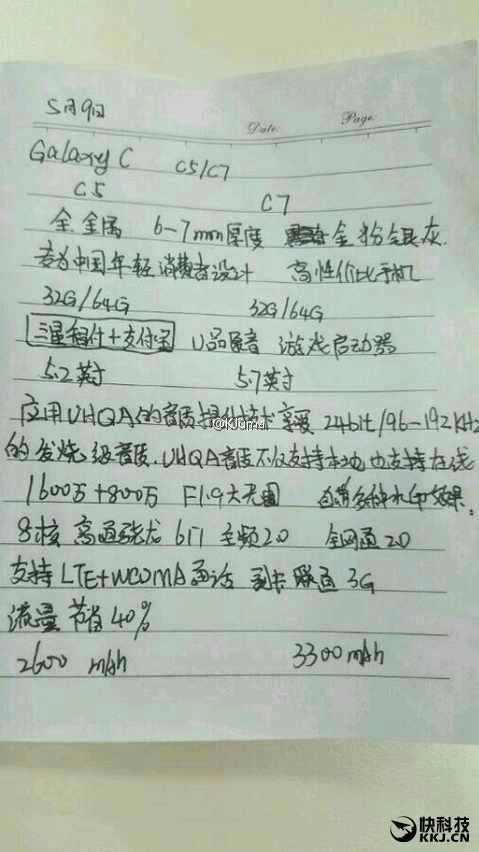 5月9日
Date Page
Galaxy C C5/C7
C5 C7
全金属 6-7mm厚度 金粉银灰.
专为中国年轻消费者设计 高性价比手机
32G/64G 32G/64G
三星智付+支付宝 U品影音 游戏启动器
5.2英寸 5.7英寸
应用UHQA的音质提升技术 享受 24bit/96-192KHz
@KJuma
的发烧级音质.UHQA音质不仅支持本地也支持在线
1600万+800万 F1.9大光圈 自带多种水印效果.
8核 高通骁龙 617 主频2.0 全网通2.0
支持LTE+WCDMA通话 副卡联通3G
流量节省40%
2600 mAh 3300mAh
快科技
KKJ.CN